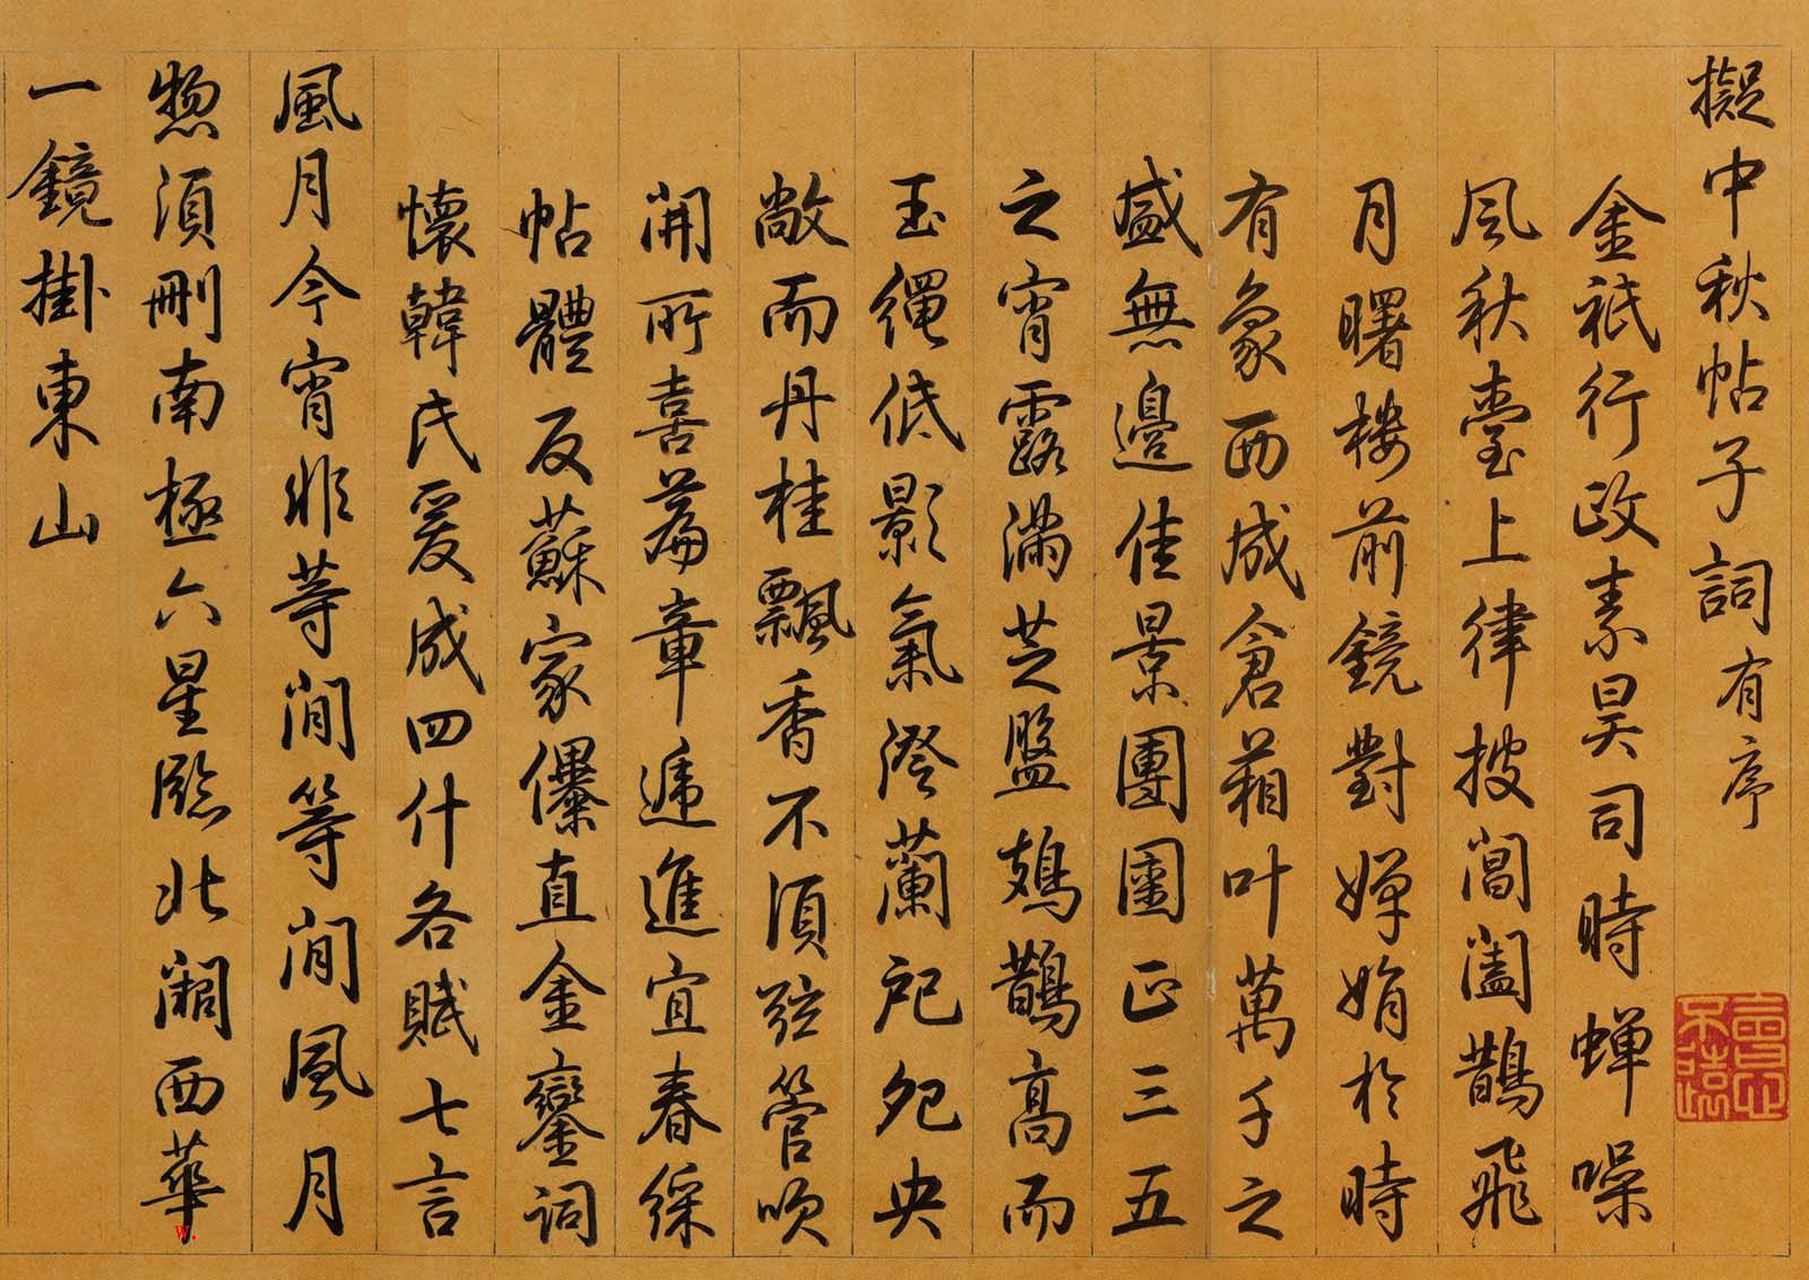 擬中秋帖子詞有序
金祇行政素昊司時蟬噪
風秋臺上律披閶闔鵲飛
月曙樓前鏡對嬋娟於時
有象西成倉葙叶萬千之
盛無邊佳景團圞正三五
之宵露滿芝盤鳷鵲高而
玉繩低影氣澄蘭戺夗央
敞而丹桂飄香不須弦管吹
開所喜篇章遞進宜春綵
帖體反蘇家儤直金鑾詞
懷韓氏爰成四什各賦七言
風月今宵非等閒等閒風月
惣須刪南極六星臨北闕西華
一鏡掛東山
W.